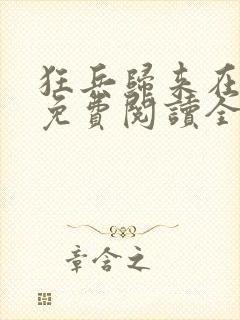 狂兵歸來在
免費閱讀全
章含之